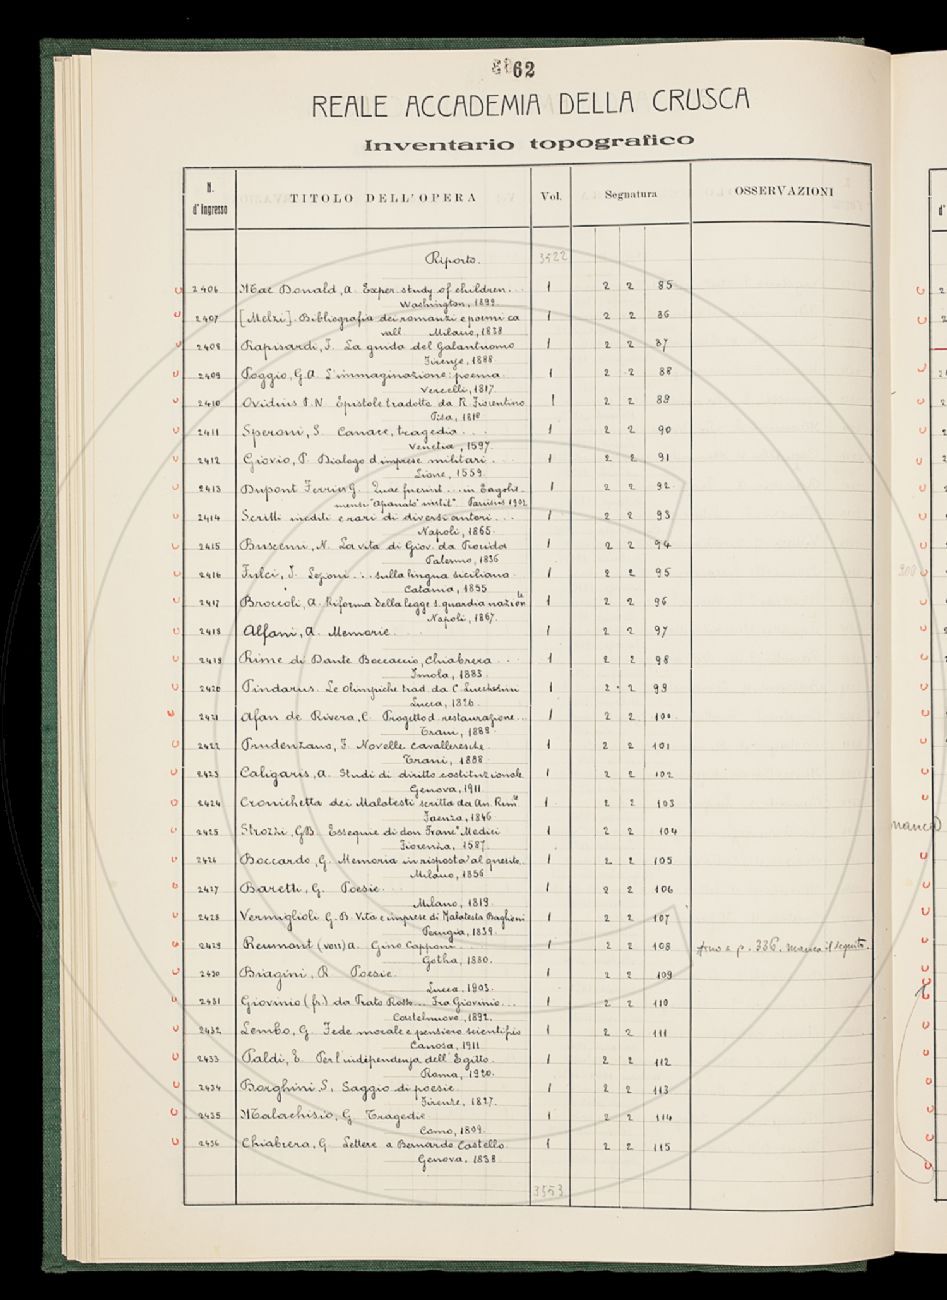 62
REALE ACCADEMIA DELLA CRUSCA
Inventario topografico
N. d'Ingresso TITOLO DELL'OPERA Vol. Segnatura OSSERVAZIONI
Riporto. 3522
2406 Mac Donald, A. Exper. study of children... 1 2 2 85
Washington, 1899
2407 [Melzi]. Bibliografia dei romanzi e poemi ca 1 2 2 86
vall Milano, 1838
2408 Rapisardi, F. La guida del Galantuomo 1 2 2 87
Firenze, 1888
2409 Poggio, G.A. L'immaginazione: poema. 1 2 2 88
Vercelli, 1817
2410 Ovidius P. N. Epistole tradotte da R. Fiorentino 1 2 2 89
Pisa, 1818
2411 Speroni, S. Canace, tragedia... 1 2 2 90
Venetia, 1597.
2412 Giovio, P. Dialogo d imprese militari... 1 2 2 91
Lione, 1559
2413 Dupont Ferrier G. Quae fuerint...in 1 2 2 92
Parisiis 1902
2414 Scritti inediti e rari di diversi autori... 1 2 2 93
Napoli, 1865
2415 Buscemi, N. La vita di Giov. da Procida 1 2 2 94
Palermo, 1836
2416 Fulci, I. Lezioni... sulla lingua siciliana 1 2 2 95
Catania, 1855
2417 Broccoli, A. Riforma della legge s. guardia nazionle 1 2 2 96
Napoli, 1867.
2418 Alfani, A. Memorie. 1 2 2 97
2419 Rime di Dante Boccaccio, Chiabrera... 1 2 2 98
Imola, 1883
2420 Pindarus. Le Olimpiche trad. da C. Lucchesini 1 2 2 99
Lucca, 1826
2421 Afan de Rivera, C. Progetto d. restaurazione... 1 2 2 100
Trani, 1888
2422 Prudenzano, F. Novelle cavalleresche. 1 2 2 101
Trani, 1888
2423 Caligaris, A. Studi di diritto costituzionale 1 2 2 102
Genova, 1911
2424 Cronichetta dei Malatesti scritta da An. Rimse 1 2 2 103
Faenza, 1846
2425 Strozzi, GB. Essequie di don Franc° Medici 1 2 2 104
Fiorenza, 1587.
2426 Boccardo, G. Memoria in risposta al quesito. 1 2 2 105
Milano, 1856
2427 Baretti, G. Poesie. 1 2 2 106
Milano, 1819
2428 Vermiglioli G. B. Vita e imprese di Malatesta Baglioni 1 2 2 107
Perugia, 1839.
2429 Reumont (von) A. Gino Capponi 1 2 2 108 fino a p. 336. manca il seguito.
Gotha, 1880.
2430 Biagini, R. Poesie. 1 2 2 109
Lucca, 1903
2431 Giovinio (fr.) da Prato Rosso... Fra Giovinio... 1 2 2 110
Castelnuovo, 1892.
2432 Lembo, G. Fede morale e pensiero scientifico 1 2 2 111
Canosa, 1911
2433 Paldi, E. Per l'indipendenza dell'Egitto. 1 2 2 112
Roma, 1920.
2434 Borghini S. Saggio di poesie 1 2 2 113
Firenze, 1827.
2435 Malachisio, G. Tragedie 1 2 2 114
Como, 1809.
2436 Chiabrera, G. Lettere a Bernardo Castello. 1 2 2 115
Genova, 1838
3553